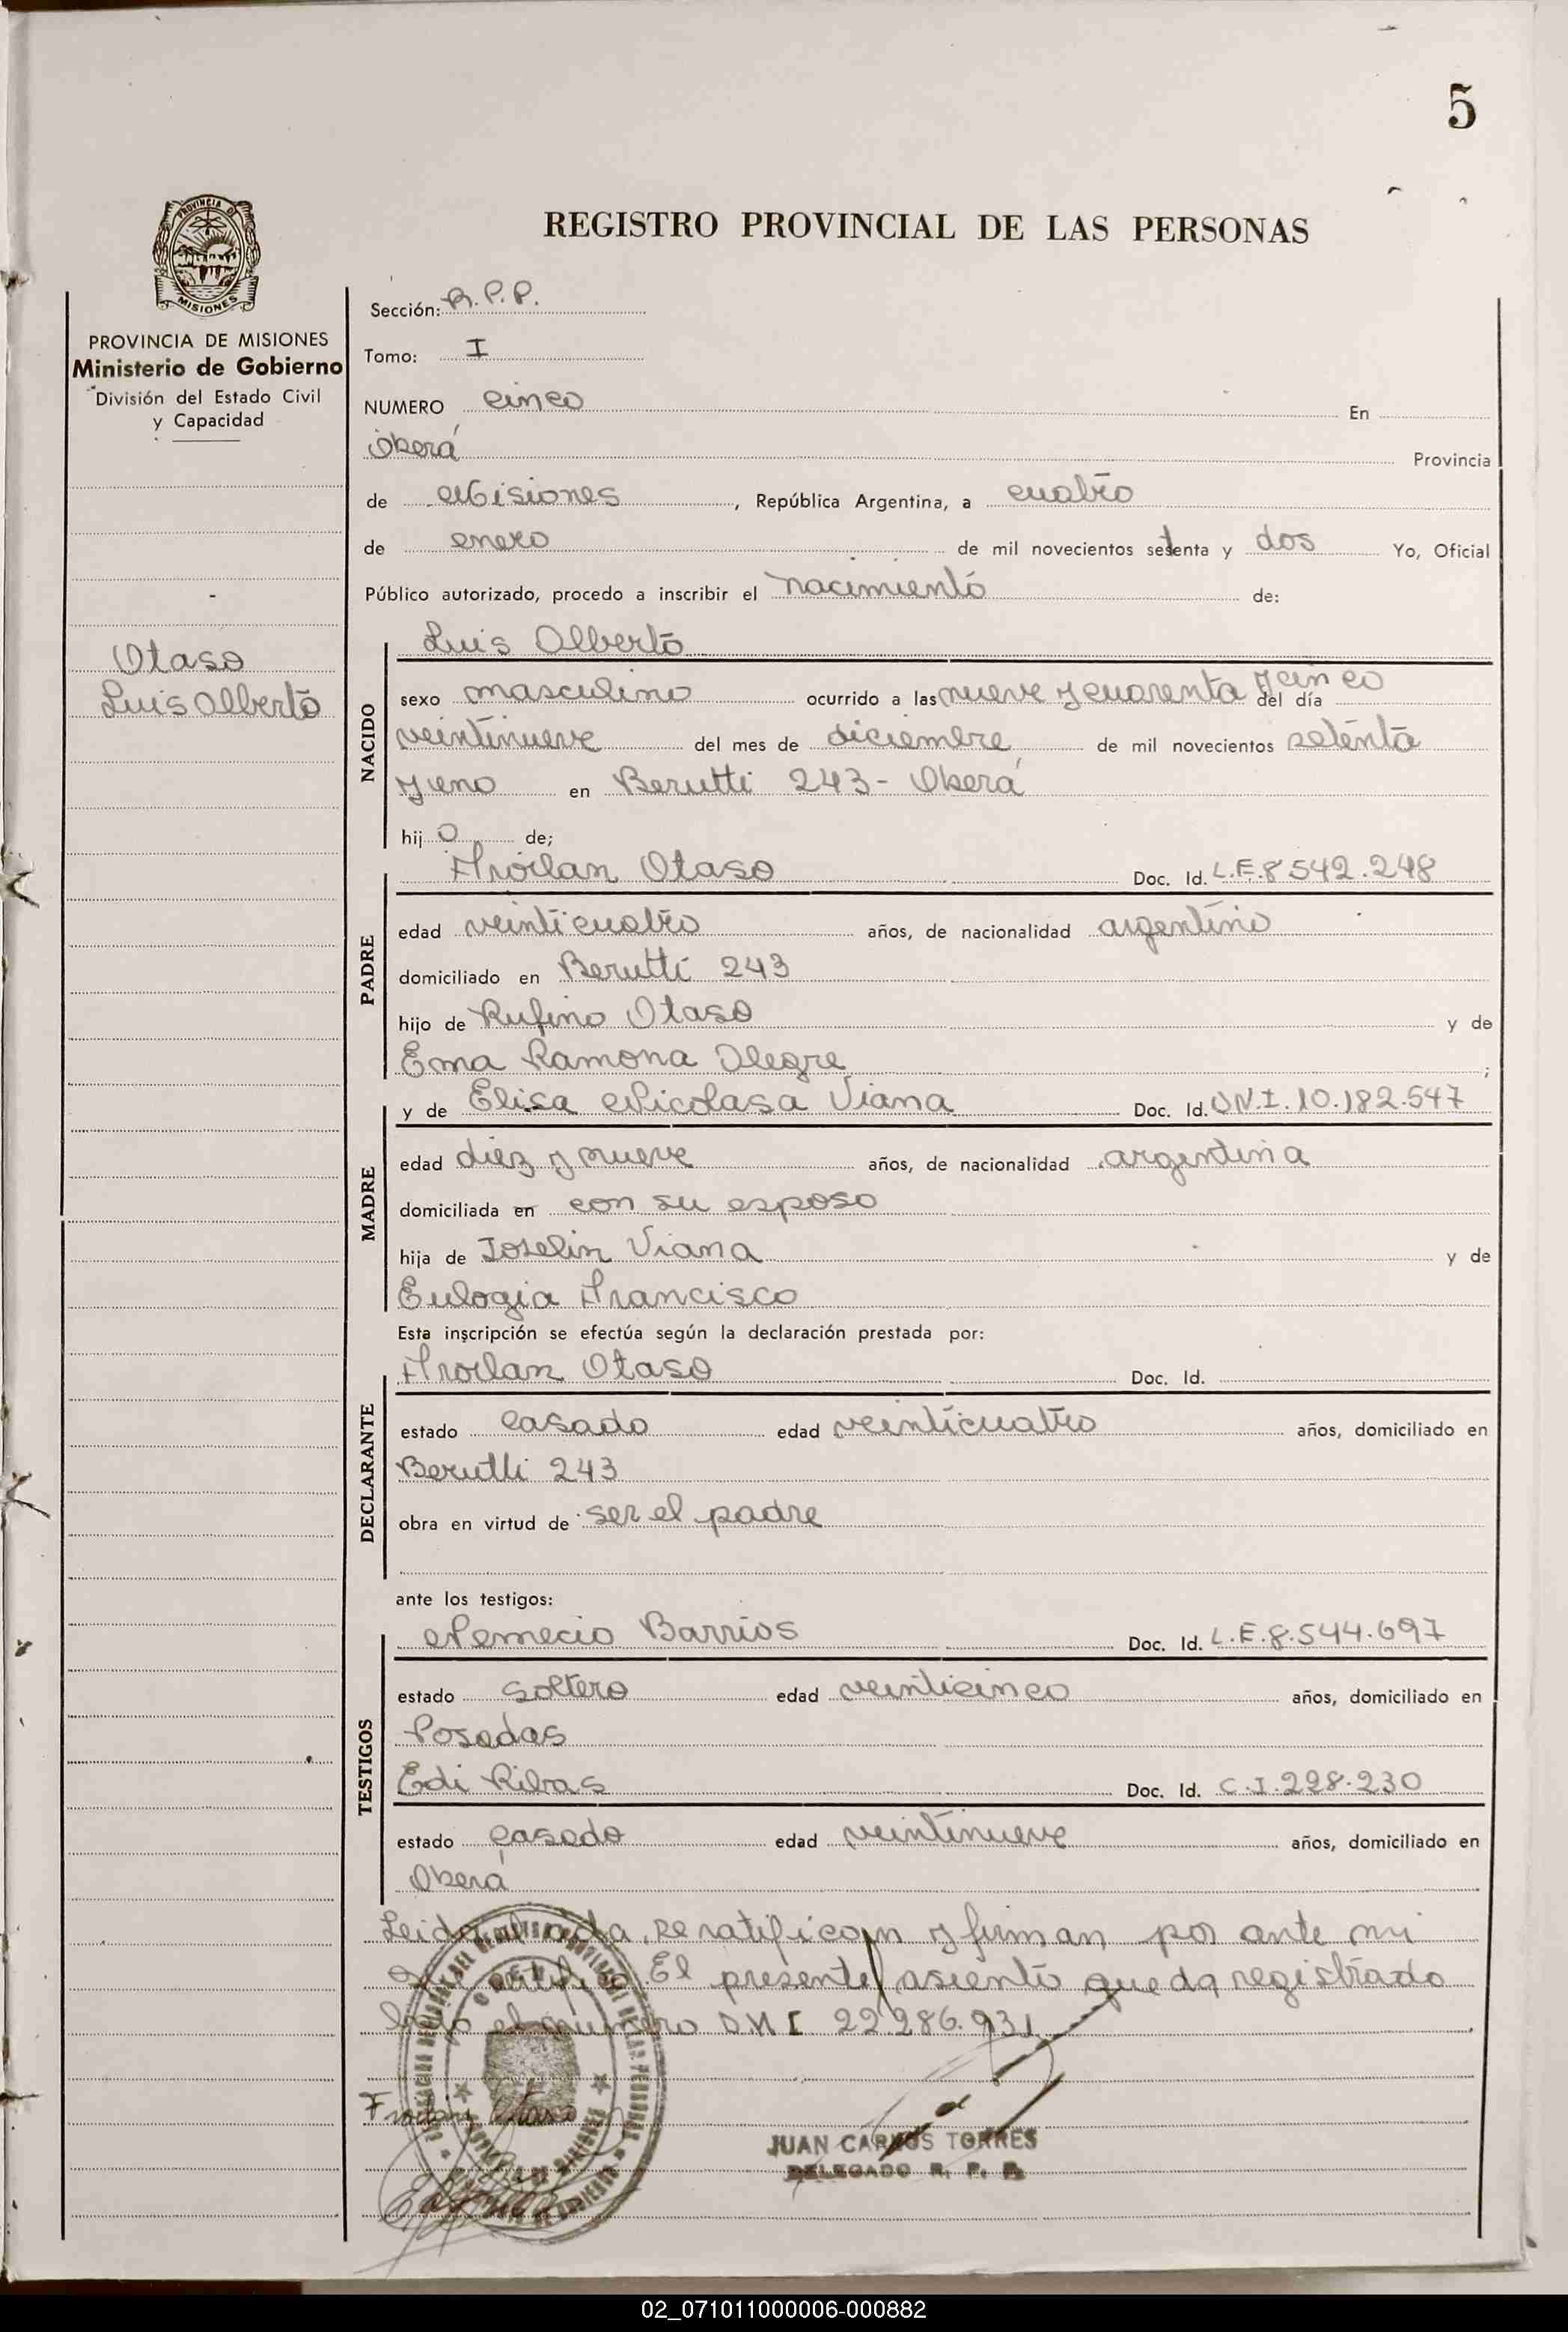 5
REGISTRO PROVINCIAL DE LAS PERSONAS
PROVINCIA DE
MISIONES
PROVINCIA DE MISIONES
Ministerio de Gobierno
División del Estado Civil
y Capacidad
Otaso
Luis Alberto
Sección: R.P.P.
Tomo: I
NUMERO cinco En
Oberá Provincia
de Misiones, República Argentina, a cuatro
de enero de mil novecientos setenta y dos Yo, Oficial
Público autorizado, procedo a inscribir el nacimiento de:
NACIDO
Luis Alberto
sexo masculino ocurrido a las nueve y cuarenta y cinco del día
veintinueve del mes de diciembre de mil novecientos setenta
y uno en Berutti 243 - Oberá
hijo de;
PADRE
Froilan Otaso Doc. Id. L.E. 8.542.248
edad veinticuatro años, de nacionalidad argentino
domiciliado en Berutti 243
hijo de Rufino Otaso y de
Ema Ramona Alegre;
MADRE
y de Elisa Nicolasa Viana Doc. Id. D.N.I. 10.182.547
edad diez y nueve años, de nacionalidad argentina
domiciliada en con su esposo
hija de Joselin Viana y de
Eulogia Francisco
Esta inscripción se efectúa según la declaración prestada por:
DECLARANTE
Froilan Otaso Doc. Id.
estado casado edad veinticuatro años, domiciliado en
Berutti 243
obra en virtud de ser el padre
ante los testigos:
TESTIGOS
Nemecio Barrios Doc. Id. L.E. 8.544.697
estado soltero edad veinticinco años, domiciliado en
Posadas
Edi Ribas Doc. Id. C.I. 228.230
estado casado edad veintinueve años, domiciliado en
Oberá
Leida el acta, se ratifican y firman por ante mi
que certifico. El presente asiento queda registrado
bajo el número DNI 22.286.931
Froilan Otaso
JUAN CARLOS TORRES
DELEGADO R. P. P.
02_071011000006-000882